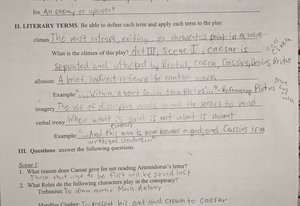 foe An enemy or oponent
II. LITERARY TERMS: Be able to define each term and apply each term to the play.
climax The most intense, exiting, or momentous point in a work
What is the climax of this play? Act III, Scene I, Caesar is
separated and attacked by Brutus, Casca, Cassius, Decius, Brutus
allusion: A brief, indirect reference to another work
Example: "...Within, a heart Dearer than Plutus..." - Referencing Plutus
imagery The use of descriptive words to call the senses to mind
verbal irony When what is said is not what is meant
Example: "...And this man is now become a god, and Cassius is a
wretched creature..."
III. Questions: answer the following questions.
Scene I:
1. What reason does Caesar give for not reading Artemidorus's letter?
Those that love to be first will be saved last
2. What Roles do the following characters play in the conspiracy?
Trebonius: To draw away Mark Antony
Metellus Cimber: To present his suit and crown to Caesar